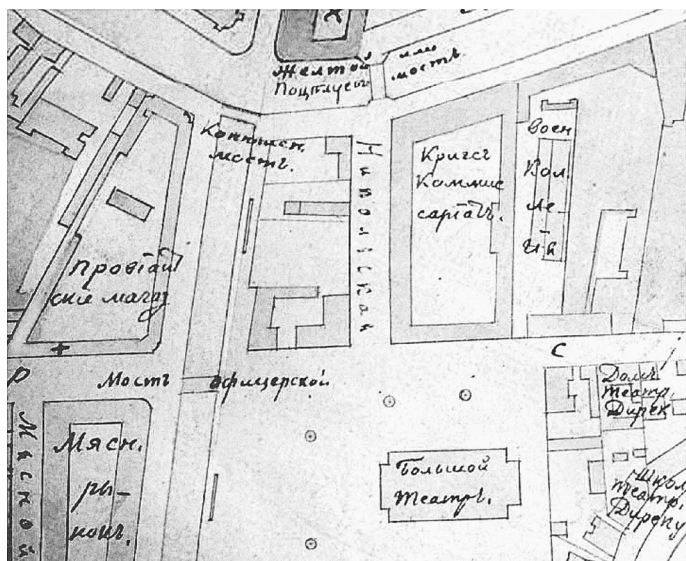 Желтой
или
мостъ
Поцѣлуевъ
Конногв.
мостъ.
Никольская
Кригсъ
Коммис
саріатъ.
Воен
Кол
ле
гія
Провіан
скіе магаз
Р
С
Мостъ Офицерской
Домъ
Театр.
Дирек
Мясной
Мясн.
ры-
нокъ.
Большой
Театръ.
Школ
Театр.
Дирекц